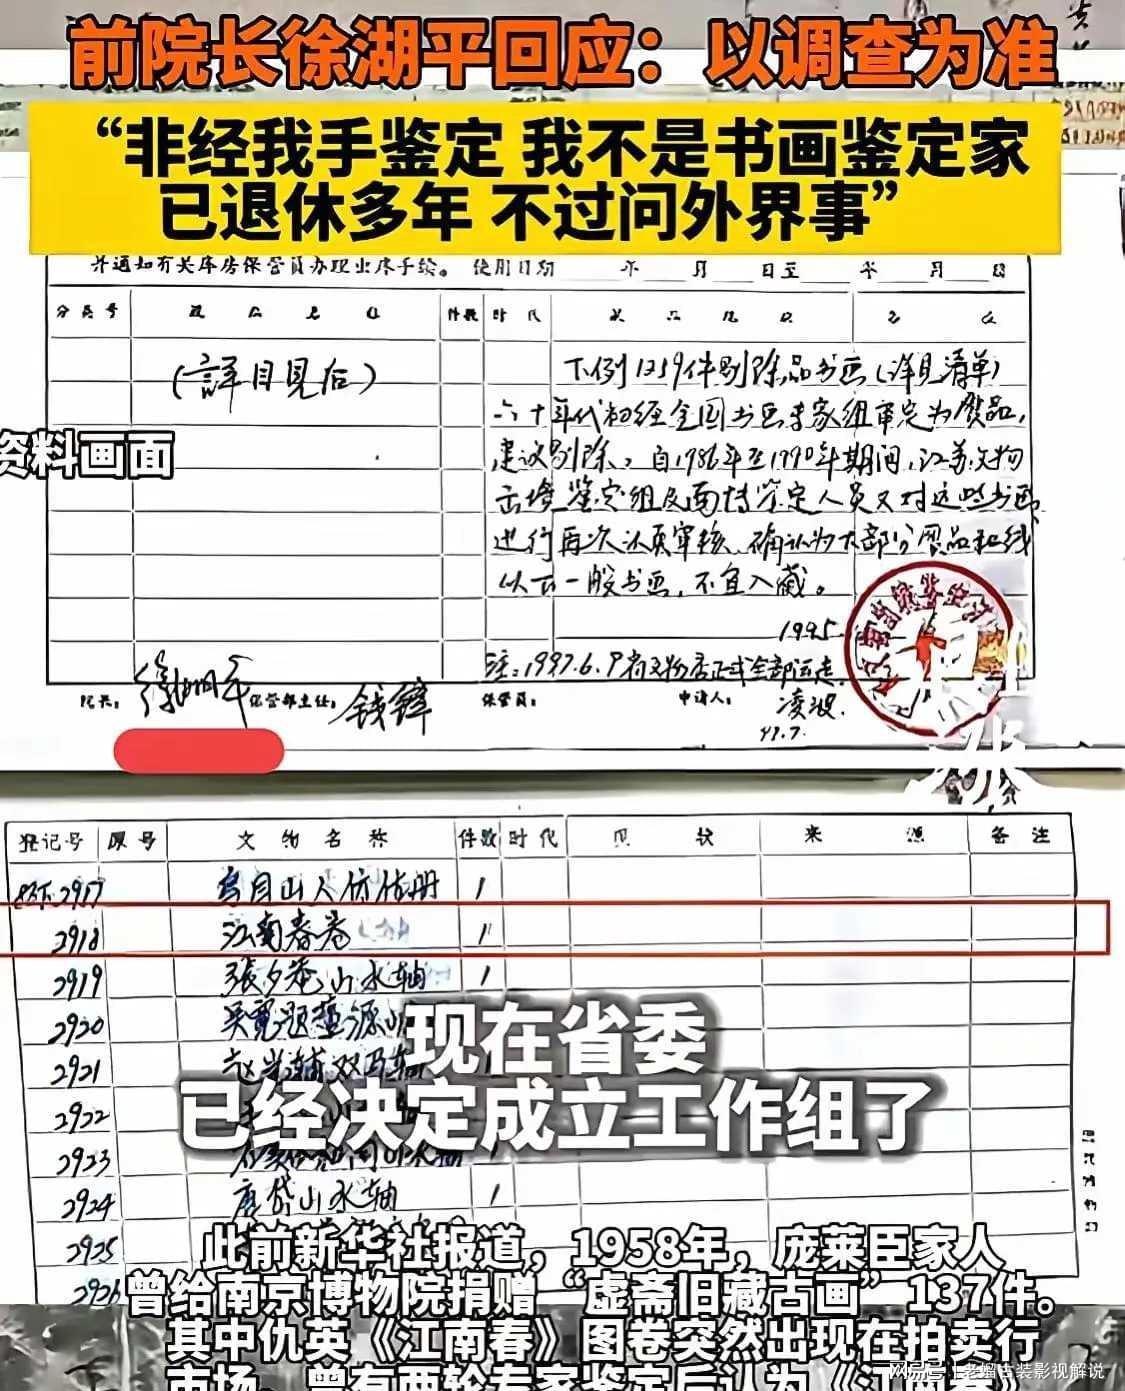 前院长徐湖平回应：以调查为准
“非经我手鉴定 我不是书画鉴定家
已退休多年 不过问外界事”
并通知有关库房保管员办理出库手续。 使用日期 年 月 日至 年 月 日
分类号 件数 时代
(詳目見后)
下例1259件剔除品书画(详见清单)
六十年代初经全国书画专家组审定为赝品，
建议剔除，自1986年至1990年期间，江苏文物
出境鉴定组及面特鉴定人员又对这些书画
进行再次认真审核，确认为大部分赝品和线
以下一般书画，不宜入藏。
资料画面
1995
注：1997.6.9省文物店正式全部运走
院长： 徐湖平 保管部主任： 钱鋒 保管员： 申请人： 凌波
97.7.
登记号 原号 文物名称 件数 时代 现状 来源 备注
2917 1
2918 江南春卷 1
2919 張夕菴山水轴 1
2920
2921
2922
2923
2924 唐岱山水轴 1
2925
现在省委
已经决定成立工作组了
此前新华社报道，1958年，庞莱臣家人
曾给南京博物院捐赠“虚斋旧藏古画”137件。
其中仇英《江南春》图卷突然出现在拍卖行
市场，曾有两轮专家鉴定后认为《江南春》
网易号 | 老熘古装影视解说